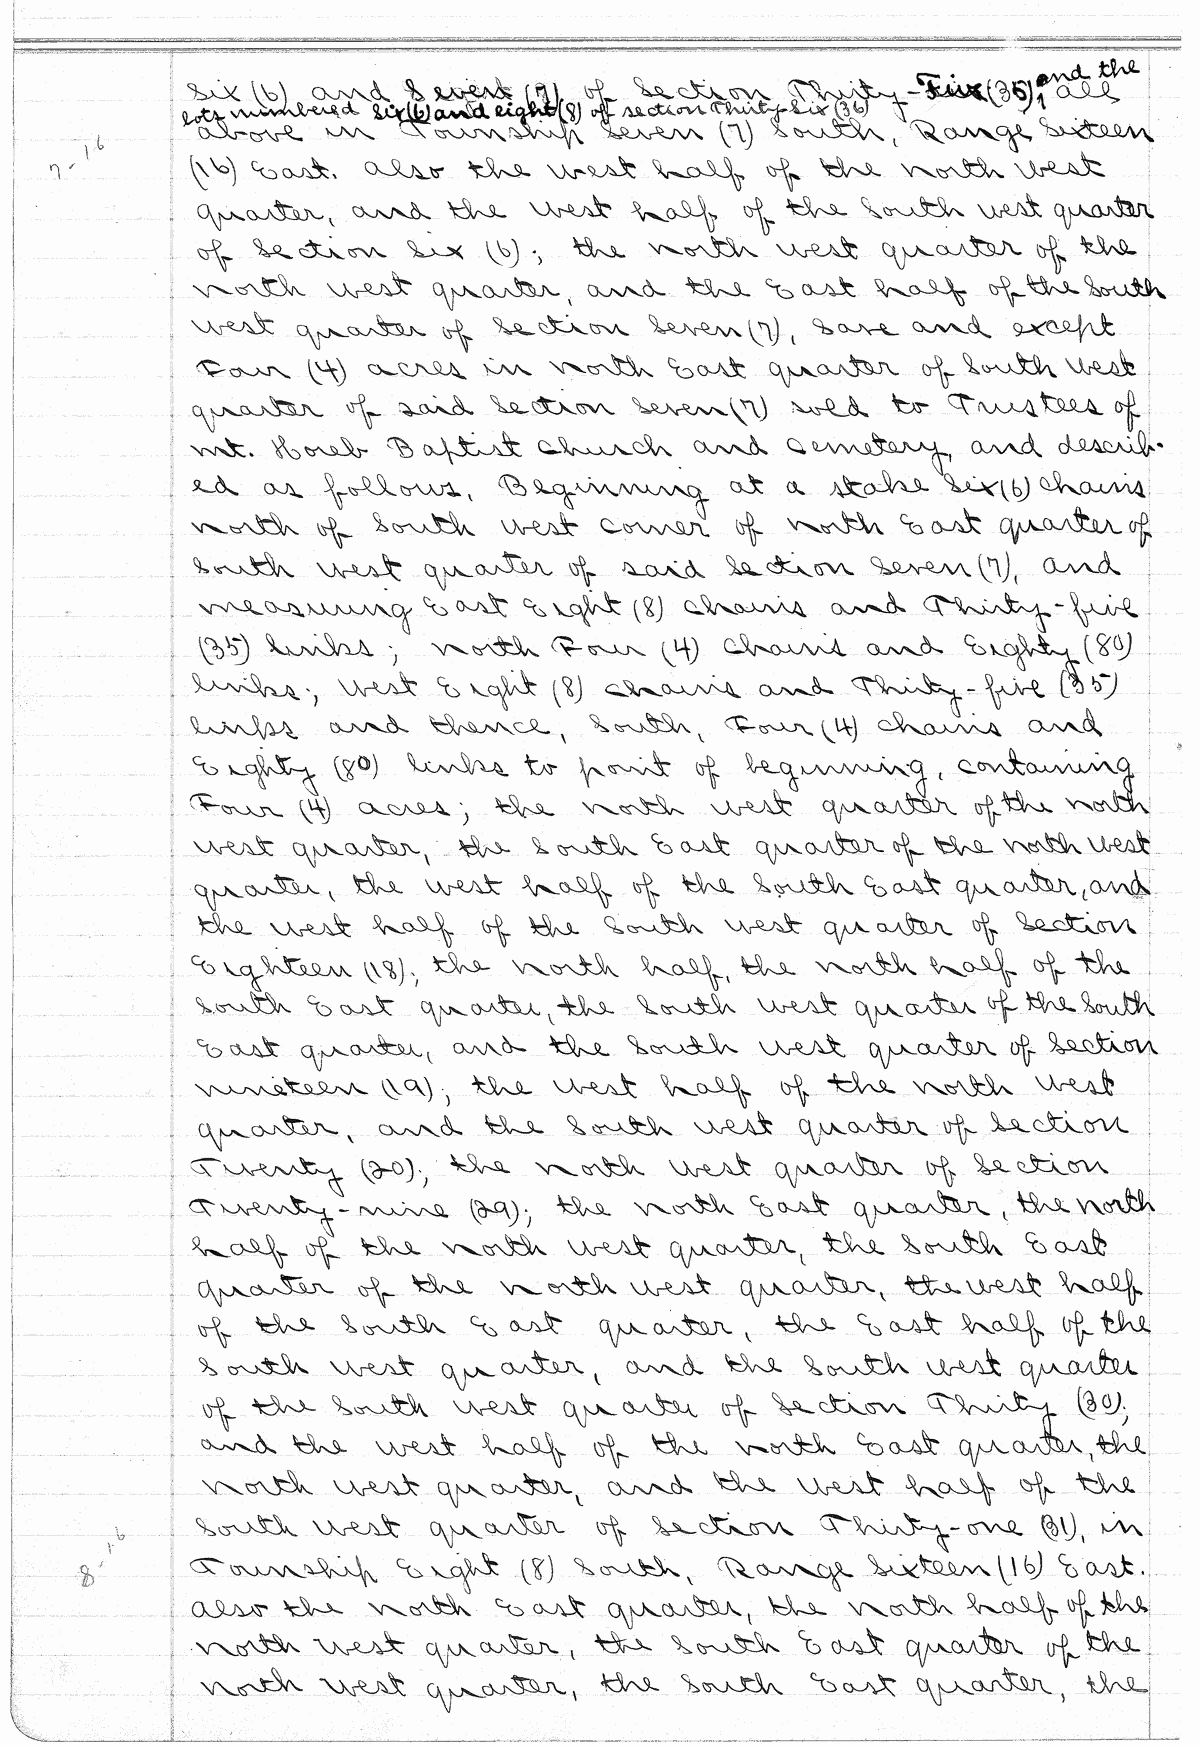 and the
six (6) and Seven (7) of Section Thirty-Five (35), all
lots numbered Six (6) and eight (8) of section Thirty-Six (36)
above in Township Seven (7) South, Range Sixteen
7-16
(16) East. also the west half of the north west
quarter, and the west half of the South west quarter
of Section Six (6); the north west quarter of the
north west quarter, and the East half of the South
west quarter of Section Seven (7), save and except
Four (4) acres in north East quarter of South West
quarter of said Section Seven (7) sold to Trustees of
mt. Horeb Baptist church and cemetery, and describ-
ed as follows, Beginning at a stake Six (6) chains
north of South west corner of north East quarter of
South west quarter of said Section Seven (7), and
measuring East Eight (8) chains and Thirty-five
(35) links; north Four (4) chains and Eighty (80)
links; west Eight (8) chains and Thirty-five (35)
links and thence, South, Four (4) chains and
Eighty (80) links to point of beginning, containing
Four (4) acres; the north west quarter of the north
west quarter, the South East quarter of the north west
quarter, the west half of the South East quarter, and
the west half of the South west quarter of Section
Eighteen (18); the north half, the north half of the
South East quarter, the South west quarter of the South
East quarter, and the South west quarter of Section
nineteen (19); the west half of the north west
quarter, and the South west quarter of Section
Twenty (20); the north west quarter of Section
Twenty-nine (29); the north East quarter, the north
half of the north west quarter, the South East
quarter of the north west quarter, the west half
of the South East quarter, the East half of the
South west quarter, and the South west quarter
of the South west quarter of Section Thirty (30);
and the west half of the north East quarter, the
north west quarter, and the west half of the
South west quarter of Section Thirty-one (31), in
8-16
Township Eight (8) South, Range Sixteen (16) East.
also the north East quarter, the north half of the
north west quarter, the South East quarter of the
north west quarter, the South East quarter, the